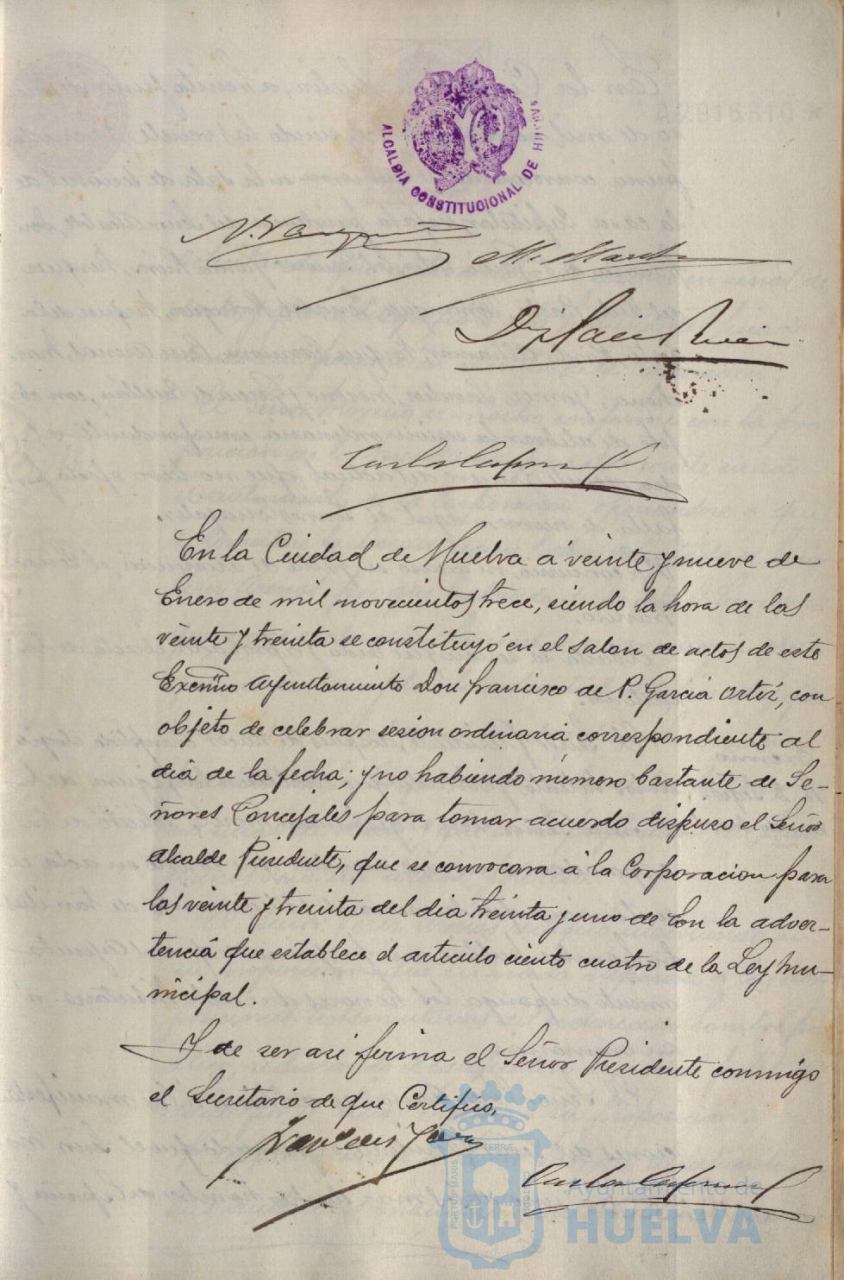 ALCALDIA CONSTITUCIONAL DE HUELVA
En la Ciudad de Huelva á veinte y nueve de
Enero de mil novecientos trece, siendo la hora de las
veinte y treinta se constituyó en el salon de actos de este
Excmo Ayuntamiento Don Francisco de P. García Ortiz, con
objeto de celebrar sesion ordinaria correspondiente al
dia de la fecha; y no habiendo número bastante de Se-
ñores Concejales para tomar acuerdo dispuso el Señor
Alcalde Presidente, que se convocara á la Corporacion para
las veinte y treinta del dia treinta y uno de con la adver-
tencia que establece el articulo ciento cuatro de la Ley Mu-
nicipal.
Y de ser asi firma el Señor Presidente conmigo
el Secretario de que Certifico.
Ayuntamiento de
HUELVA